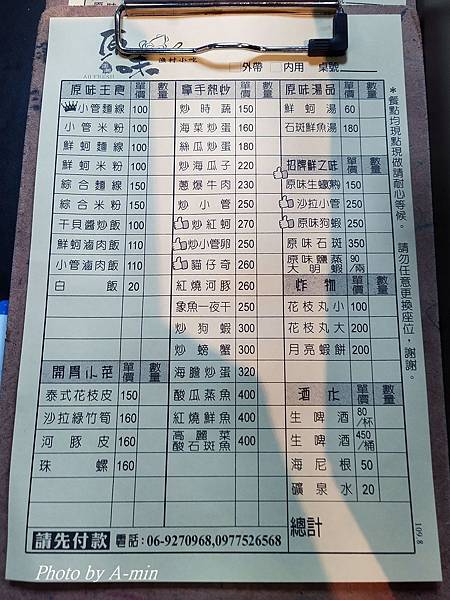 原味
漁村小吃
□外帶 □內用 桌號
原味主食 單價 數量
小管麵線 100
小管米粉 100
鮮蚵麵線 100
鮮蚵米粉 100
綜合麵線 150
綜合米粉 150
干貝醬炒飯 100
鮮蚵滷肉飯 110
小管滷肉飯 110
白飯 20
開胃小菜 單價 數量
泰式花枝皮 150
沙拉綠竹筍 160
河豚皮 160
珠螺 160
拿手熱炒 單價 數量
炒時蔬 150
海菜炒蛋 160
絲瓜炒蛋 180
炒海瓜子 220
蔥爆牛肉 230
炒小管 250
炒紅蚵 270
炒小管卵 250
貓仔奇 260
紅燒河豚 260
象魚一夜干 250
炒狗蝦 300
炒螃蟹 300
海膽炒蛋 320
酸瓜蒸魚 400
紅燒鮮魚 400
高麗菜酸石斑魚 400
原味湯品 單價 數量
鮮蚵湯 60
石斑鮮魚湯 180
招牌鮮之味 單價 數量
原味生蠔 150
沙拉小管 250
原味狗蝦 250
原味石斑 350
原味鹽蒸大明蝦 90/兩
炸物 單價 數量
花枝丸小 100
花枝丸大 200
月亮蝦餅 200
酒水 單價 數量
生啤酒 80/杯
生啤酒 450/桶
海尼根 50
礦泉水 20
總計
請先付款 電話:06-9270968,0977526568
*餐點均現點現做請耐心等候。 請勿任意更換座位,謝謝。
109.8
Photo by A-min